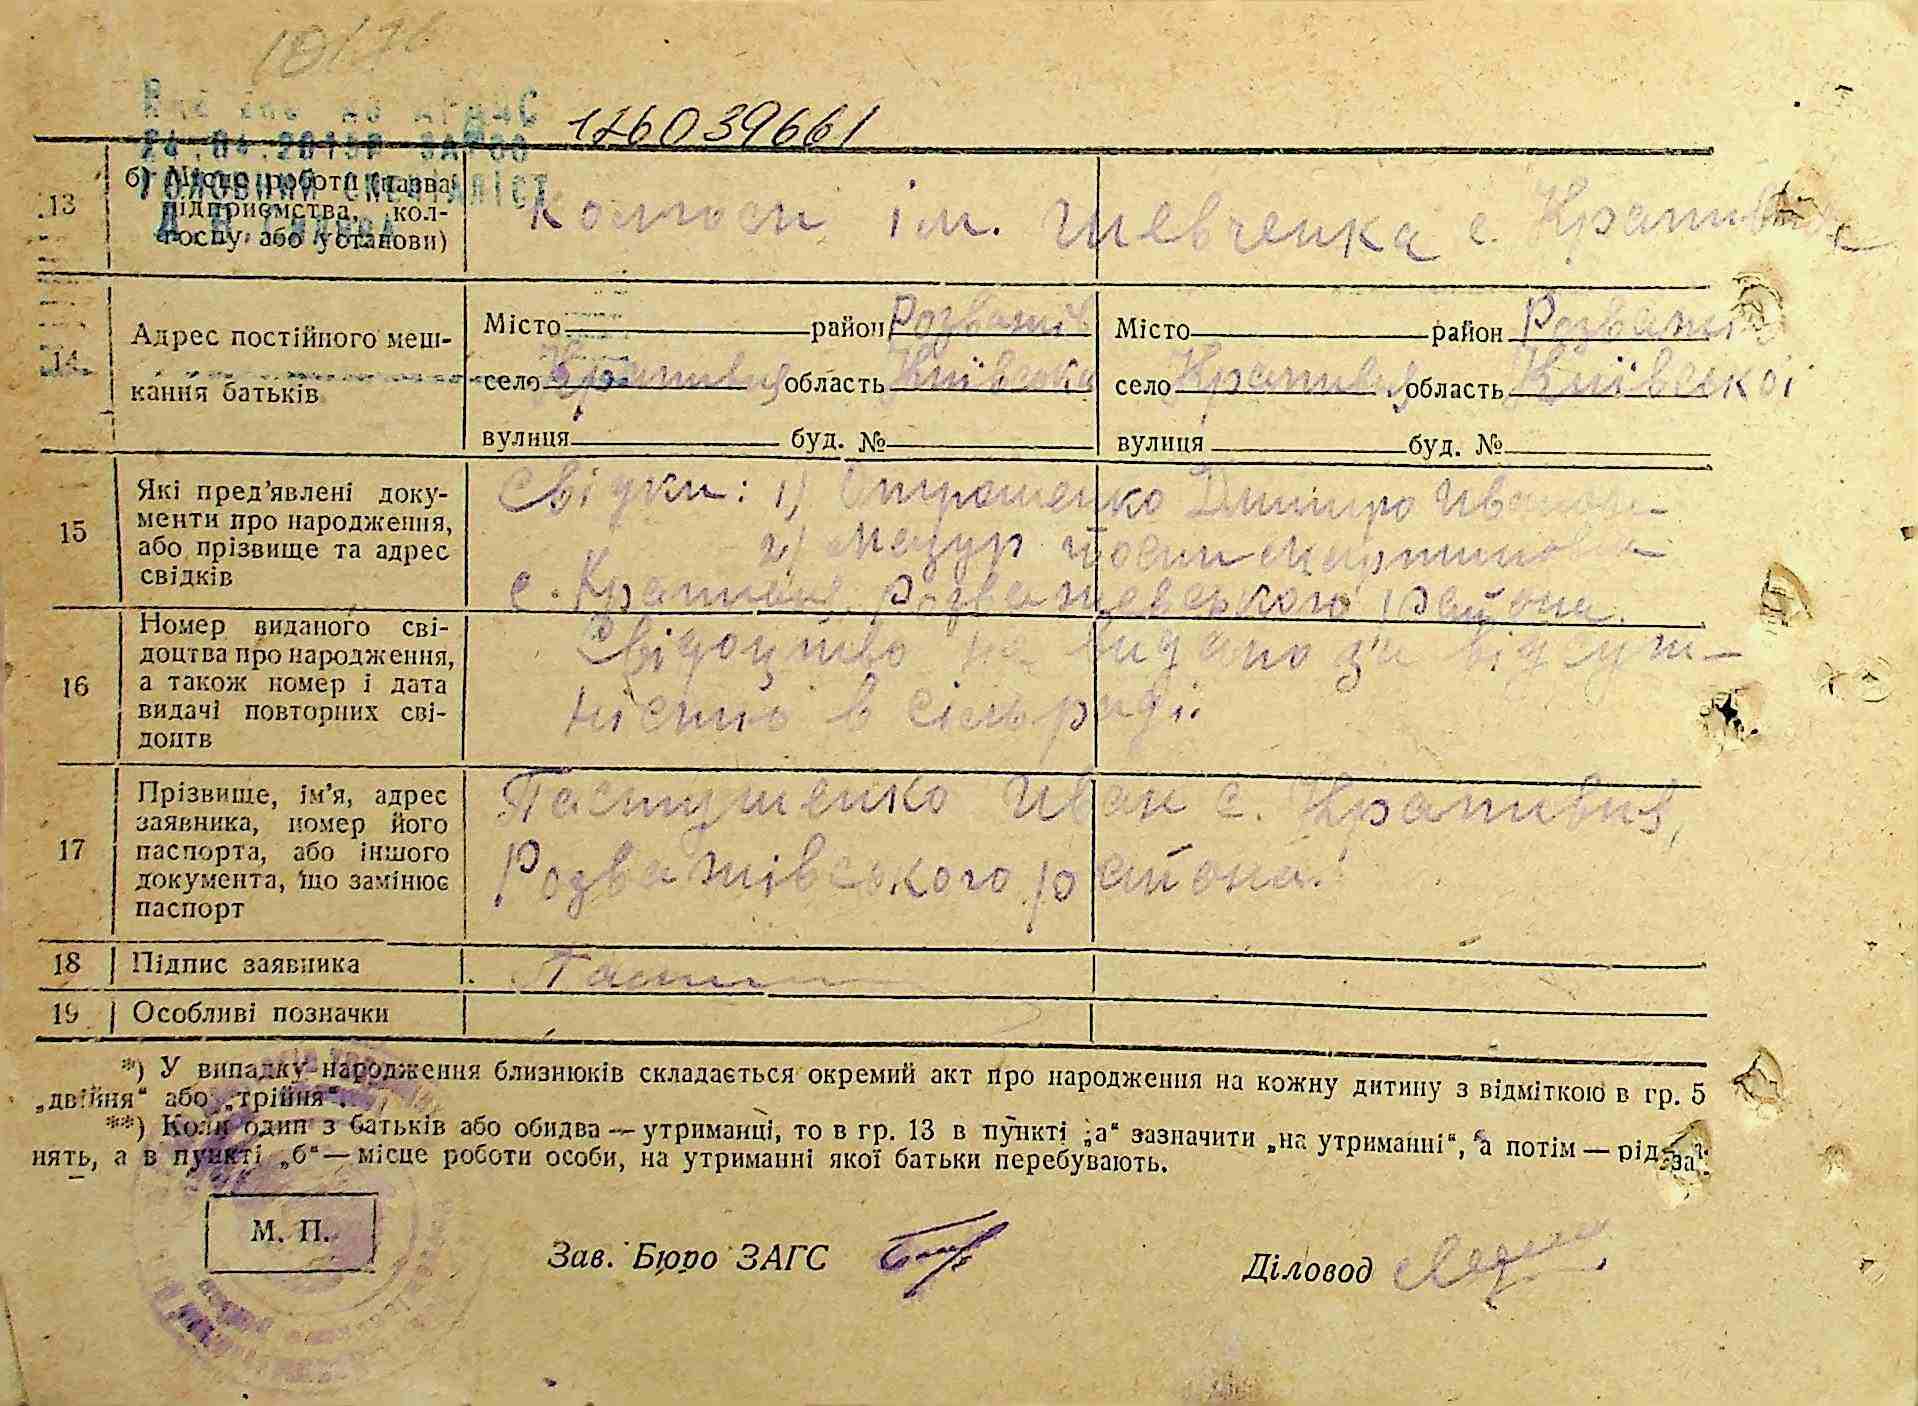 176039661
13 б) Місце роботи (назва підприємства, кол-
госпу або установи)
Колгосп ім. Шевченка с. Крапивня
14 Адрес постійного меш-
кання батьків
Місто район Розважів Місто район Розважів
село Крапивня область Київська село Крапивня область Київської
вулиця буд. № вулиця буд. №
15 Які пред'явлені доку-
менти про народження,
або прізвище та адрес
свідків
Свідки: 1) Дмитро Іванов.
2) Мазур
с. Крапивня Розважевського района.
16 Номер виданого сві-
доцтва про народження,
а також номер і дата
видачі повторних сві-
доцтв
Свідоцтво не видано з'а відсут-
ністю в сільраді.
17 Прізвище, ім'я, адрес
заявника, номер його
паспорта, або іншого
документа, що замінює
паспорт
Пастушенко Иван с. Крапивня,
Розважівського района.
18 Підпис заявника
19 Особливі позначки
*) У випадку народження близнюків складається окремий акт про народження на кожну дитину з відміткою в гр. 5
„двійня“ або „трійня“.
**) Коли один з батьків або обидва — утриманці, то в гр. 13 в пункті „а“ зазначити „на утриманні“, а потім — рід за-
нять, а в пункті „б“ — місце роботи особи, на утриманні якої батьки перебувають.
М. П.
Зав. Бюро ЗАГС Діловод